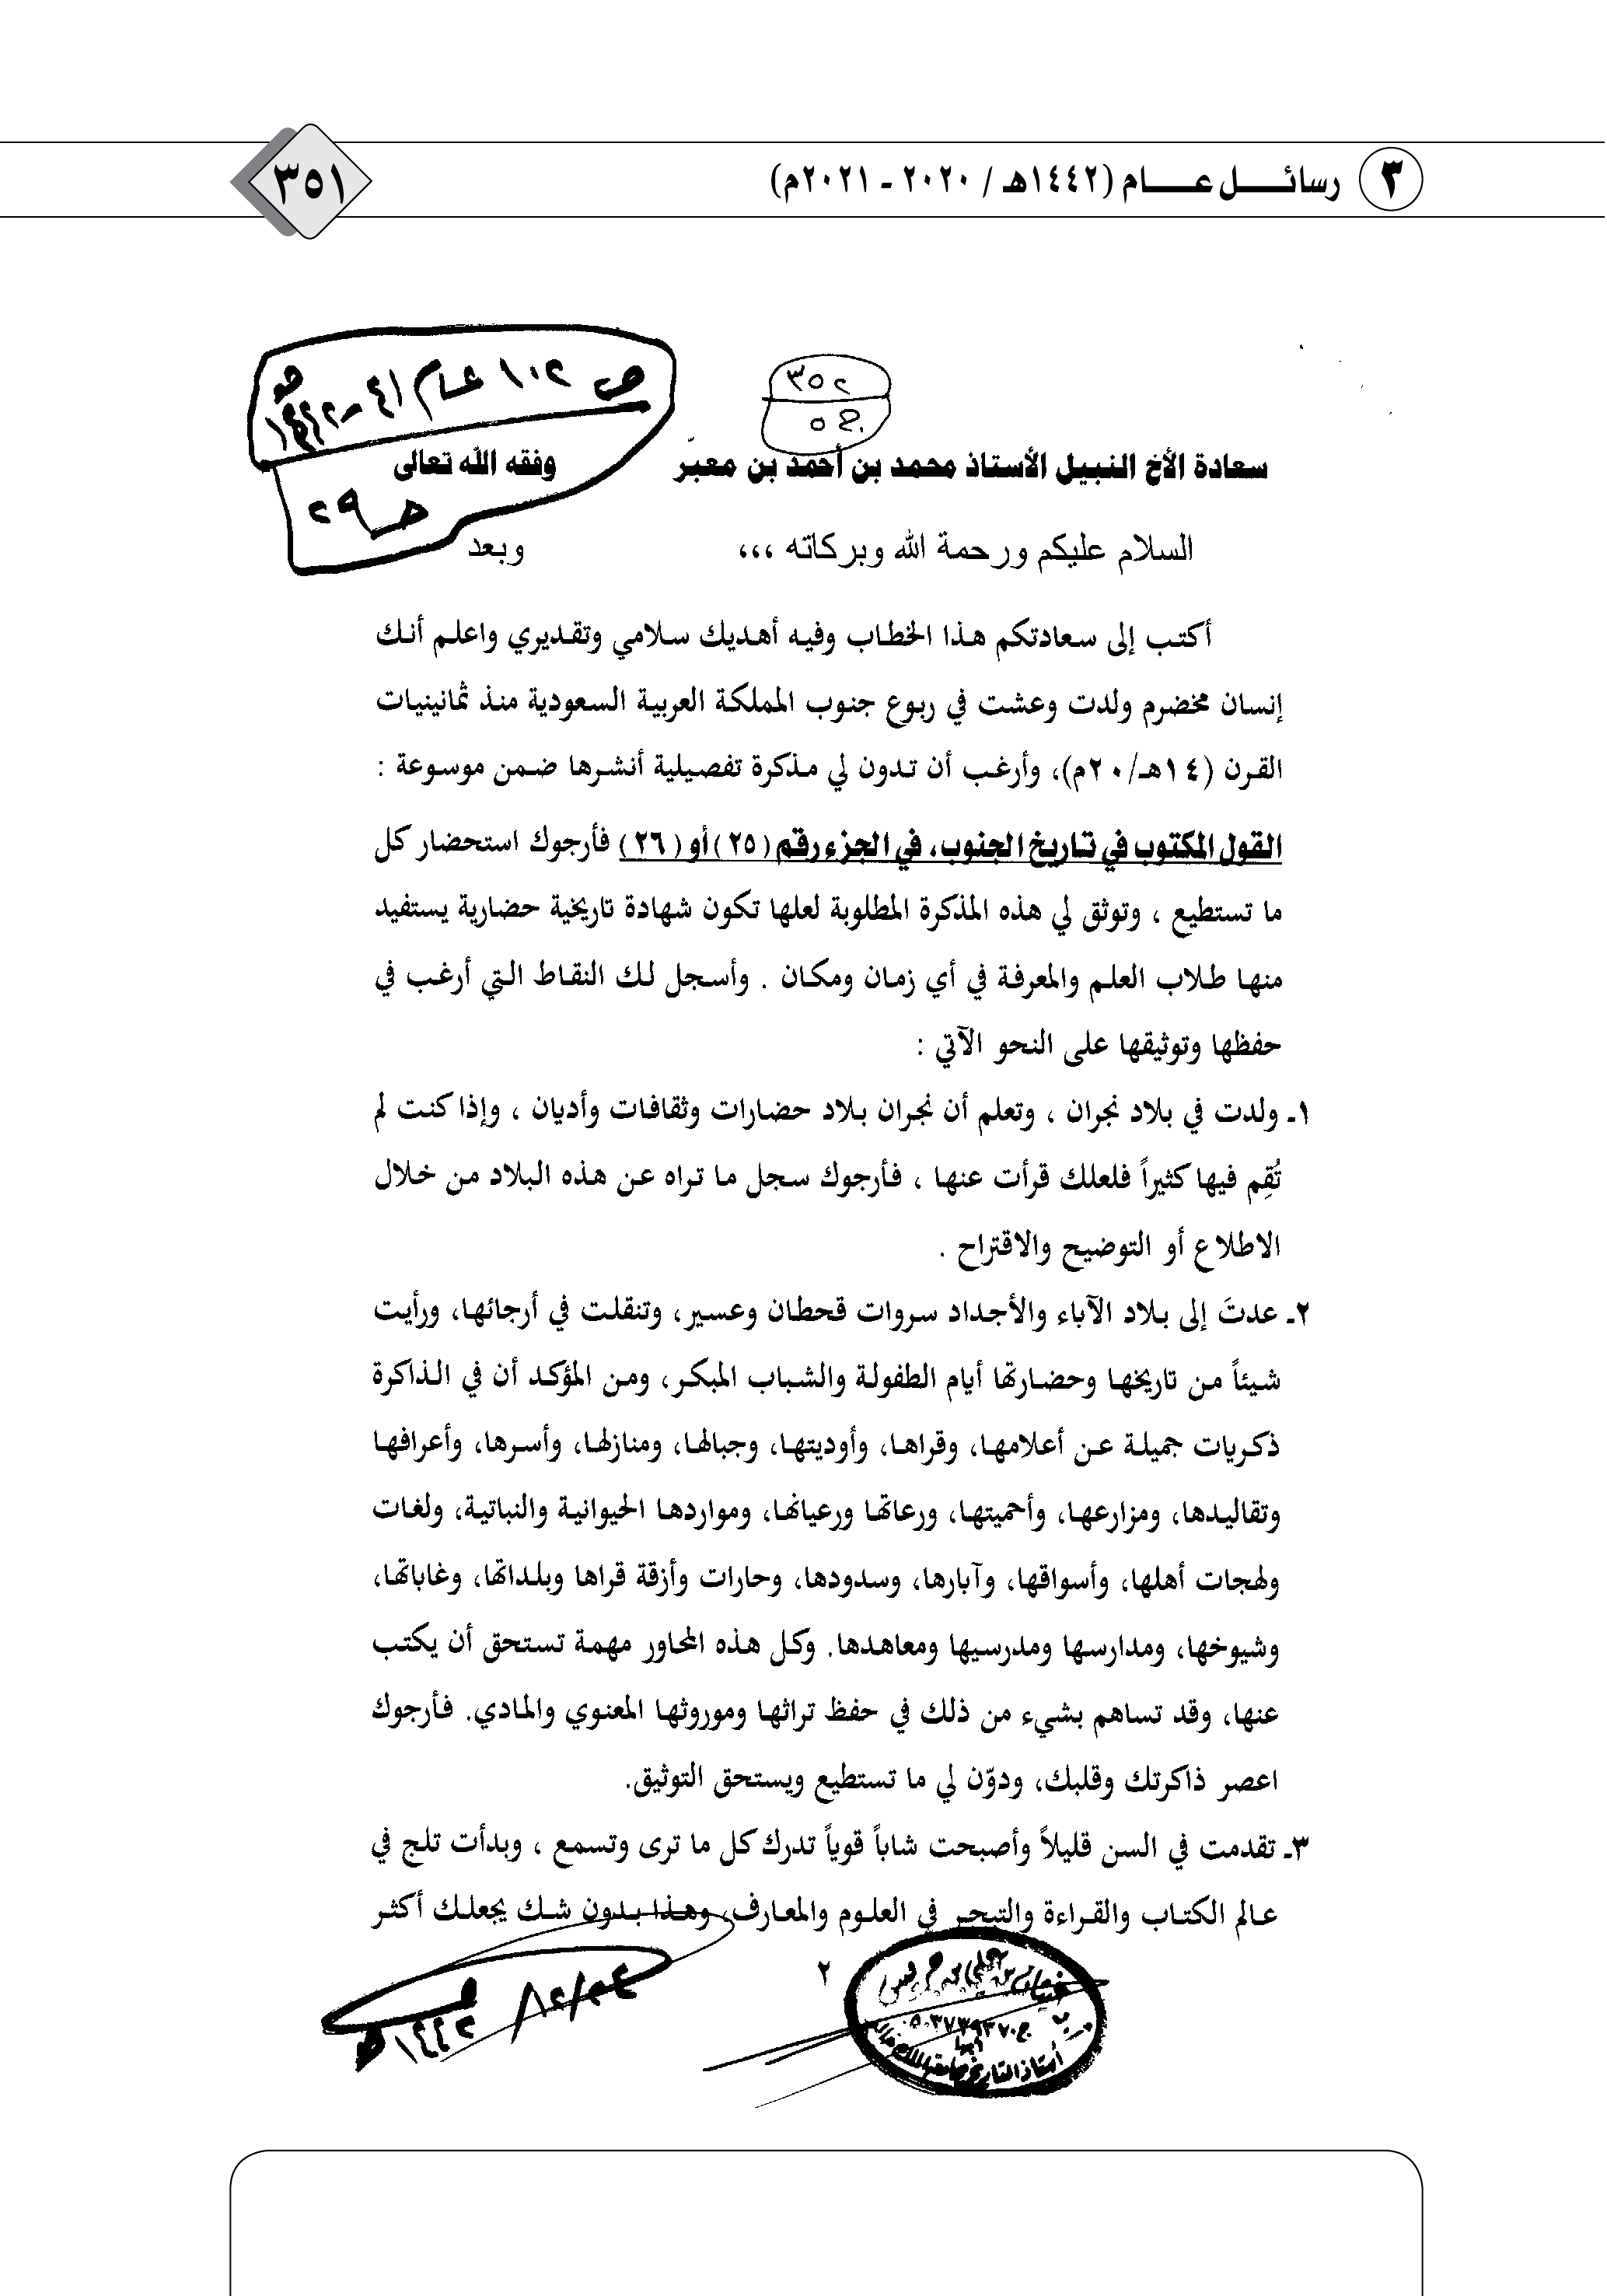 ٣ رسائل عام (١٤٤٢هـ / ٢٠٢٠ - ٢٠٢١م)
٣٥١
ص ١٠٢ عام ٤١-١٤٤٢هـ
حـ ٢٩
٣٥٢
سعادة الأخ النبيل الأستاذ محمد بن أحمد بن معبر وفقه الله تعالى
السلام عليكم ورحمة الله وبركاته ،،، وبعد
أكتب إلى سعادتكم هذا الخطاب وفيه أهديك سلامي وتقديري واعلم أنك
إنسان مخضرم ولدت وعشت في ربوع جنوب المملكة العربية السعودية منذ ثمانينيات
القرن (١٤هـ/٢٠م)، وأرغب أن تدون لي مذكرة تفصيلية أنشرها ضمن موسوعة :
القول المكتوب في تاريخ الجنوب، في الجزء رقم (٢٥) أو (٢٦) فأرجوك استحضار كل
ما تستطيع ، وتوثق لي هذه المذكرة المطلوبة لعلها تكون شهادة تاريخية حضارية يستفيد
منها طلاب العلم والمعرفة في أي زمان ومكان . وأسجل لك النقاط التي أرغب في
حفظها وتوثيقها على النحو الآتي :
١ـ ولدت في بلاد نجران ، وتعلم أن نجران بلاد حضارات وثقافات وأديان ، وإذا كنت لم
تُقِم فيها كثيراً فلعلك قرأت عنها ، فأرجوك سجل ما تراه عن هذه البلاد من خلال
الاطلاع أو التوضيح والاقتراح .
٢ـ عدتَ إلى بلاد الآباء والأجداد سروات قحطان وعسير، وتنقلت في أرجائها، ورأيت
شيئاً من تاريخها وحضارتها أيام الطفولة والشباب المبكر، ومن المؤكد أن في الذاكرة
ذكريات جميلة عن أعلامها، وقراها، وأوديتها، وجبالها، ومنازلها، وأسرها، وأعرافها
وتقاليدها، ومزارعها، وأحميتها، ورعاتها ورعيانها، ومواردها الحيوانية والنباتية، ولغات
ولهجات أهلها، وأسواقها، وآبارها، وسدودها، وحارات وأزقة قراها وبلداتها، وغاباتها،
وشيوخها، ومدارسها ومدرسيها ومعاهدها. وكل هذه المحاور مهمة تستحق أن يكتب
عنها، وقد تساهم بشيء من ذلك في حفظ تراثها وموروثها المعنوي والمادي. فأرجوك
اعصر ذاكرتك وقلبك، ودوّن لي ما تستطيع ويستحق التوثيق.
٣ـ تقدمت في السن قليلاً وأصبحت شاباً قوياً تدرك كل ما ترى وتسمع ، وبدأت تلج في
عالم الكتاب والقراءة والتبحر في العلوم والمعارف، وهذا بدون شك يجعلك أكثر
٢
١٤٤٢هـ
أستاذ التاريخ